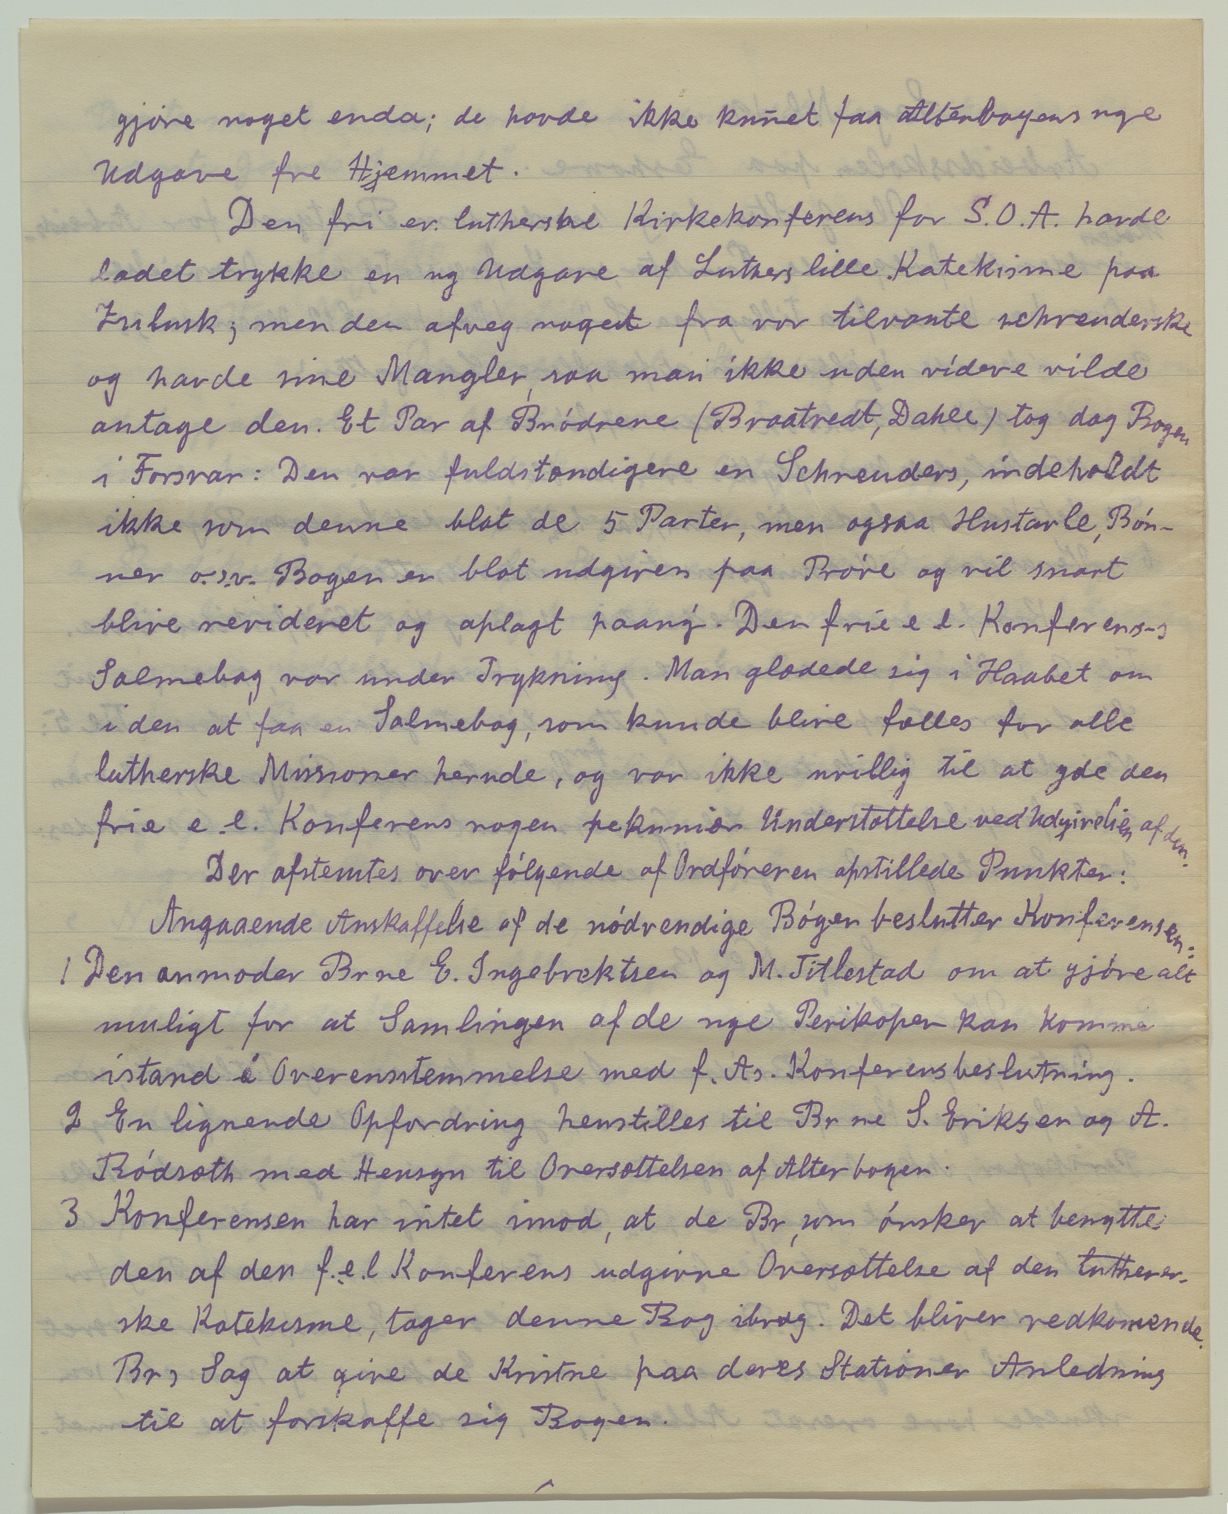 gjøre noget enda; de havde ikke kun̄et faa Alterbogens nye
Udgave fra Hjemmet.
Den fri ev. lutherske Kirkekonferens for S.O.A. havde
ladet trykke en ny Udgave af Luthers lille Katekisme paa
Zulusk; men den afveg noget fra vor tilvante schreuderske
og havde sine Mangler, saa man ikke uden videre vilde
antage den. Et Par af Brødrene (Braatvedt, Dahle) tog dog Bogen
i Forsvar: Den var fuldstændigere en Schreuders, indeholdt
ikke som denne blot de 5 Parter, men ogsaa Hustavle, Bøn-
ner o.s.v. Bogen er blot udgiven paa Prøve og vil snart
blive revideret og oplagt paany. Den frie e l. Konferens-s
Salmebog var under Trykning. Man glædede sig i Haabet om
i den at faa en Salmebog, som kunde blive fælles for alle
lutherske Missioner herude, og var ikke uvillig til at yde den
frie e. l. Konferens nogen pekuniær Understøttelse ved Udgivelsen af den.
Der afstemtes over følgende af Ordføreren opstillede Punkter:
Angaaende Anskaffelse af de nødvendige Bøger beslutter Konferensen:
1 Den anmoder Brne E. Ingebrektsen og M. Titlestad om at gjøre alt
muligt for at Samlingen af de nye Perikoper kan komme
istand i Overensstemmelse med f. As. Konferensbeslutning.
2 En lignende Opfordring henstilles til Brne S. Eriksen og A.
Rødsæth med Hensyn til Oversættelsen af Alterbogen.
3 Konferensen har intet imod, at de Br, som ønsker at benytte
den af den f.e.l Konferens udgivne Oversættelse af den luther-
ske Katekisme, tager denne Bog ibrug. Det bliver vedkomende
Brs Sag at give de Kristne paa deres Stationer Anledning
til at forskaffe sig Bogen.